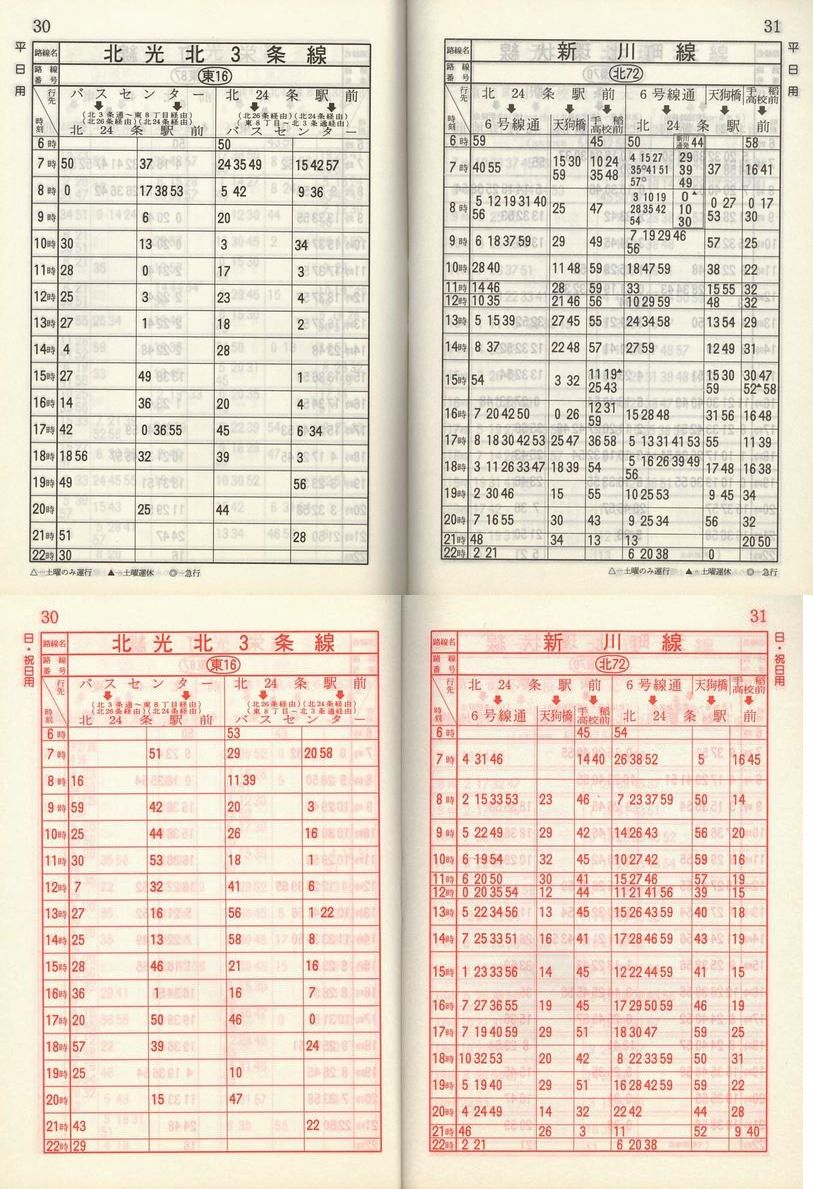 30
平日用
路線名 北光北3条線
路線番号 東16
行先 時刻 バスセンター 北24条駅前
(北3条通~東8丁目経由)(北26条経由)(北24条経由) (北26条経由)(北24条経由)(東8丁目~北3条通経由)
北24条駅前 バスセンター
6時 50
7時 50 37 24 35 49 15 42 57
8時 0 17 38 53 5 42 9 36
9時 6 20
10時 30 13 3 34
11時 28 0 17 3
12時 25 3 23 4
13時 27 1 18 2
14時 4 28
15時 27 49 1
16時 14 36 20 4
17時 42 0 36 55 45 6 34
18時 18 56 32 39 3
19時 49 56
20時 25 44
21時 51 28
22時 30
△…土曜のみ運行 ▲…土曜運休 ◎…急行
31
平日用
路線名 新川線
路線番号 北72
行先 時刻 北24条駅前 6号線通 天狗橋 手稲高校前
6号線通 天狗橋 手稲高校前 北24条駅前
6時 59 45 50 新川通発 44 58
7時 40 55 15 30 59 10 24 35 48 4 15 27 35◎41 51 57◎ 29 39 49 37 16 41
8時 5 12 19 31 40 56 25 47 3 10 19 28 35 42 54 0▲ 10 30 0 27 53 0 17 30
9時 6 18 37 59 29 49 7 19 29 46 56 57 25
10時 28 40 11 48 59 18 47 59 38 22
11時 14 46 28 59 33 15 55 32
12時 10 35 21 46 56 10 29 59 48 32
13時 5 15 39 27 45 55 24 34 58 13 54 29
14時 8 37 22 48 57 27 59 12 49 31
15時 54 3 32 11 19▲ 25 43 15 30 59 30 47 52▲58
16時 7 20 42 50 0 26 12 31 59 15 28 48 31 56 16 48
17時 8 18 30 42 53 25 47 36 58 5 13 31 41 53 55 11 39
18時 3 11 26 33 47 18 39 54 5 16 26 39 49 56 17 48 16 38
19時 2 30 46 15 55 10 25 53 9 45 34
20時 7 16 55 30 43 9 25 34 56 32
21時 48 34 13 13 20 50
22時 2 21 6 20 38 0
△…土曜のみ運行 ▲…土曜運休 ◎…急行
30
日・祝日用
路線名 北光北3条線
路線番号 東16
行先 時刻 バスセンター 北24条駅前
(北3条通~東8丁目経由)(北26条経由)(北24条経由) (北26条経由)(北24条経由)(東8丁目~北3条通経由)
北24条駅前 バスセンター
6時 53
7時 51 29 20 58
8時 16 11 39
9時 59 42 20 3
10時 25 44 26 16
11時 30 53 18 1
12時 7 32 41 6
13時 27 16 56 1 22
14時 25 13 58 8
15時 28 46 21 16
16時 36 1 16 7
17時 20 50 46 0
18時 57 39 24
19時 25 10
20時 15 47
21時 43 22
22時 29
31
日・祝日用
路線名 新川線
路線番号 北72
行先 時刻 北24条駅前 6号線通 天狗橋 手稲高校前
6号線通 天狗橋 手稲高校前 北24条駅前
6時 45 54
7時 4 31 46 14 40 26 38 52 5 16 45
8時 2 15 33 53 23 46 7 23 37 59 50 14
9時 5 22 49 29 42 14 26 43 56 20
10時 6 19 54 32 45 10 27 42 59 16
11時 6 20 50 30 41 15 27 46 57 19
12時 0 20 35 54 12 44 11 21 41 56 39 15
13時 5 22 34 56 13 45 15 26 43 59 40 18
14時 7 25 33 51 16 41 17 28 46 59 43 19
15時 1 23 33 56 14 45 12 22 44 59 41 15
16時 7 27 36 55 19 45 17 29 50 59 46 19
17時 7 19 40 59 29 51 18 30 47 59 25
18時 10 32 53 20 42 8 22 33 59 50 31
19時 5 19 40 29 51 16 28 42 59 59 22
20時 4 24 49 14 32 22 42 44 28
21時 46 26 3 11 52 9 40
22時 2 21 6 20 38